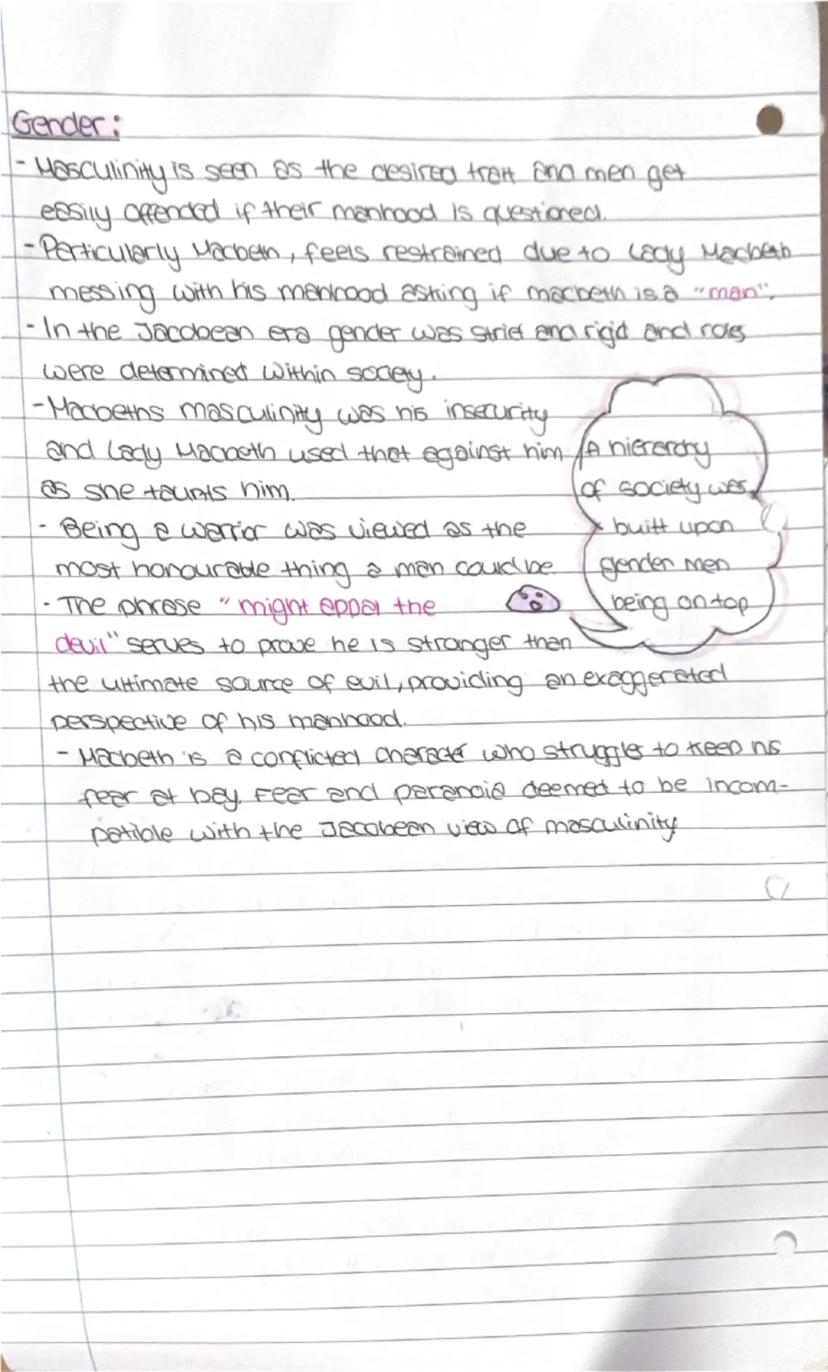 Gender:
- Masculinity is seen as the desired trait and men get
easily offended if their manhood is questioned.
- Particularly Macbeth, feels restrained due to Lady Macbeth
messing with his manhood asking if macbeth is a "man".
- In the Jacobean era gender was strict and rigid and roles
were determined within society.
- Macbeths masculinity was his insecurity
and Lady Macbeth used that against him
as she taunts him.
- Being a warrior was viewed as the
most honourable thing a man could be.
- The phrase "might appal the
devil" serves to prove he is stronger than
the ultimate source of evil, providing an exaggerated
perspective of his manhood.
- Macbeth is a conflicted character who struggles to keep his
fear at bay. Fear and paranoia deemed to be incom-
patible with the Jacobean view of masculinity
A hierarchy
of society was
built upon
gender men
being on top